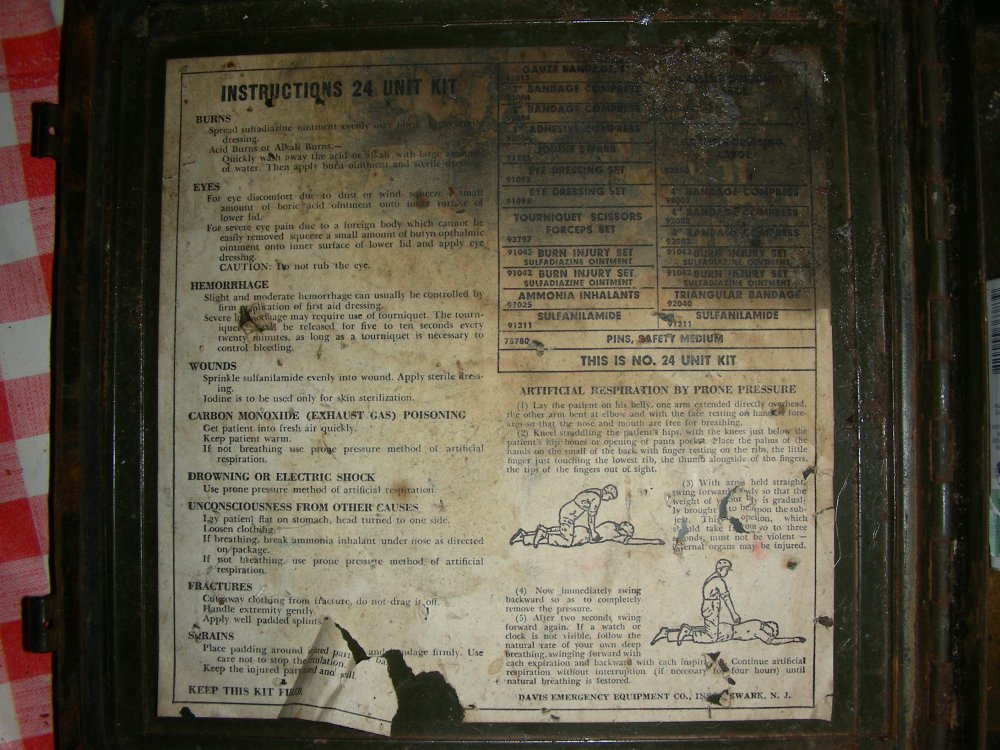 INSTRUCTIONS 24 UNIT KIT
BURNS
Spread sulfadiazine ointment evenly over
dressing.
Acid Burns or Alkali Burns:—
Quickly wash away the acid or alkali with large
of water. Then apply burn ointment and sterile
EYES
For eye discomfort due to dust or wind squeeze small
amount of boric acid ointment onto inner surface of
lower lid.
For severe eye pain due to a foreign body which cannot be
easily removed squeeze a small amount of butyn opthalmic
ointment onto inner surface of lower lid and apply eye
dressing.
CAUTION: Do not rub the eye.
HEMORRHAGE
Slight and moderate hemorrhage can usually be controlled by
firm application of first aid dressing.
Severe hemorrhage may require use of tourniquet. The tourn-
iquet be released for five to ten seconds every
twenty minutes, as long as a tourniquet is necessary to
control bleeding.
WOUNDS
Sprinkle sulfanilamide evenly into wound. Apply sterile dress-
ing.
Iodine is to be used only for skin sterilization.
CARBON MONOXIDE (EXHAUST GAS) POISONING
Get patient into fresh air quickly.
Keep patient warm.
If not breathing use prone pressure method of artificial
respiration.
DROWNING OR ELECTRIC SHOCK
Use prone pressure method of artificial respiration.
UNCONSCIOUSNESS FROM OTHER CAUSES
Lay patient flat on stomach, head turned to one side.
Loosen clothing.
If breathing, break ammonia inhalant under nose as directed
on package.
If not breathing, use prone pressure method of artificial
respiration.
FRACTURES
Cut away clothing from fracture, do not drag it off.
Handle extremity gently.
Apply well padded splints.
SPRAINS
Place padding around and bandage firmly. Use
care not to stop
Keep the injured and still.
KEEP THIS KIT
GAUZE BANDAGE,
2" BANDAGE COMPRESS
BANDAGE COMPRESS
ADHESIVE COMPRESS
IODINE SWABS
EYE DRESSING SET
91095
EYE DRESSING SET
91095
TOURNIQUET SCISSORS
FORCEPS SET
93797
91042 BURN INJURY SET
SULFADIAZINE OINTMENT
91042 BURN INJURY SET
SULFADIAZINE OINTMENT
AMMONIA INHALANTS
SULFANILAMIDE
91211
4" BANDAGE COMPRESS
92002
4" BANDAGE COMPRESS
92002
4" BANDAGE COMPRESS
92002
91042 BURN INJURY SET
SULFADIAZINE OINTMENT
91042 BURN INJURY SET
SULFADIAZINE OINTMENT
TRIANGULAR BANDAGE
92040
SULFANILAMIDE
91211
78780 PINS, SAFETY MEDIUM
THIS IS NO. 24 UNIT KIT
ARTIFICIAL RESPIRATION BY PRONE PRESSURE
(1) Lay the patient on his belly, one arm extended directly overhead,
the other arm bent at elbow and with the face resting on hand or fore-
arm so that the nose and mouth are free for breathing.
(2) Kneel straddling the patient's hips, with the knees just below the
patient's hip bones or opening of pants pocket. Place the palms of the
hands on the small of the back with finger resting on the ribs, the little
finger just touching the lowest rib, the thumb alongside of the fingers,
the tips of the fingers out of sight.
(3) With arms held straight,
swing forward slowly so that the
weight of your body is gradual-
ly brought to bear upon the sub-
ject. This operation, which
should take from two to three
seconds, must not be violent —
internal organs may be injured.
(4) Now immediately swing
backward so as to completely
remove the pressure.
(5) After two seconds, swing
forward again. If a watch or
clock is not visible, follow the
natural rate of your own deep
breathing, swinging forward with
each expiration and backward with each Continue artificial
respiration without interruption (if necessary for four hours) until
natural breathing is restored.
DAVIS EMERGENCY EQUIPMENT CO., N. J.